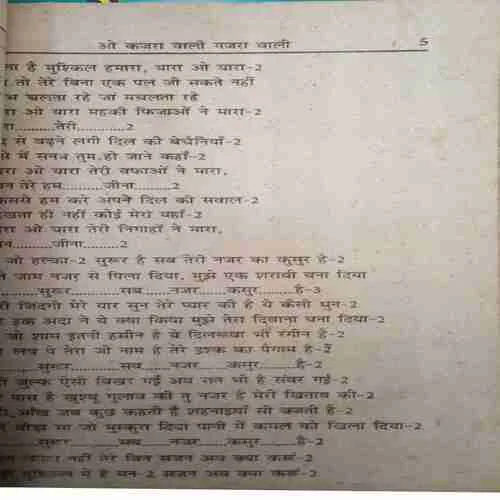 ओ कजरा वाली गजरा वाली 5
ना है मुश्किल हमारा, यारा ओ यारा-2
तो तेरे बिना एक पल जी सकते नहीं
चलता रहे जां मचलता रहे
रा ओ यारा महकी फिजाओं ने मारा-2
रा.........तेरी..........2
से बढ़ने लगी दिल की बेचैनियाँ-2
में सनम तुम हो जाने कहाँ-2
रा ओ यारा तेरी वफाओं ने मारा,
तेरे हम.........जीना.........2
हम करे अपने दिल की सवाल-2
ही नहीं कोई मेरा यहाँ-2
रा ओ यारा तेरी निगाहों ने मारा,
.........जीना.........2
जो हल्का-2 सुरूर है सब तेरी नजर का कुसूर है-2
जाम नजर से पिला दिया, मुझे एक शराबी बना दिया
.........सुरूर.........सब.......नजर......कसुर.......है-3
जिंदगी मेरे यार सुन तेरे प्यार की है ये कैसी धुन-2
इक अदा ने ये क्या किया मुझे तेरा दिवाना बना दिया-2
जो शाम इतनी हसीन है ये दिलरूबा भी रंगीन है-2
लब पे तेरा जो नाम है तेरे इश्क का पैगाम है-2
.........सुरूर.........सब.......नजर......कसुर.......है-2
जुल्फ ऐसी बिखर गई अब रात भी है संवर गई-2
पास है खुश्बू गुलाब की तु नजर है मेरी खिताब की-2
आँख जब कुछ कहती है शहनाइयाँ सी बजती है-2
सा जो मुस्कुरा दिया पानी में कमल को खिला दिया-2
.........सुरूर.........सब.......नजर......कसुर.......है-2
नहीं तेरे बिन सजन अब क्या करूं-2
मुश्किल में है मन-2 सजन अब क्या करूं-2